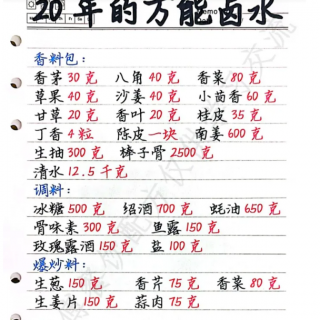 20年的万能卤水
香料包：
香茅30克 八角40克 香菜80克
草果40克 沙姜40克 小茴香60克
甘草20克 香叶20克 桂皮35克
丁香4粒 陈皮一块 南姜600克
生抽300克 棒子骨2500克
清水12.5千克
调料：
冰糖500克 绍酒700克 蚝油650克
骨味素300克 鱼露150克
玫瑰露酒150克 盐100克
爆炒料：
生葱150克 香芹75克 香菜80克
生姜片150克 蒜肉75克